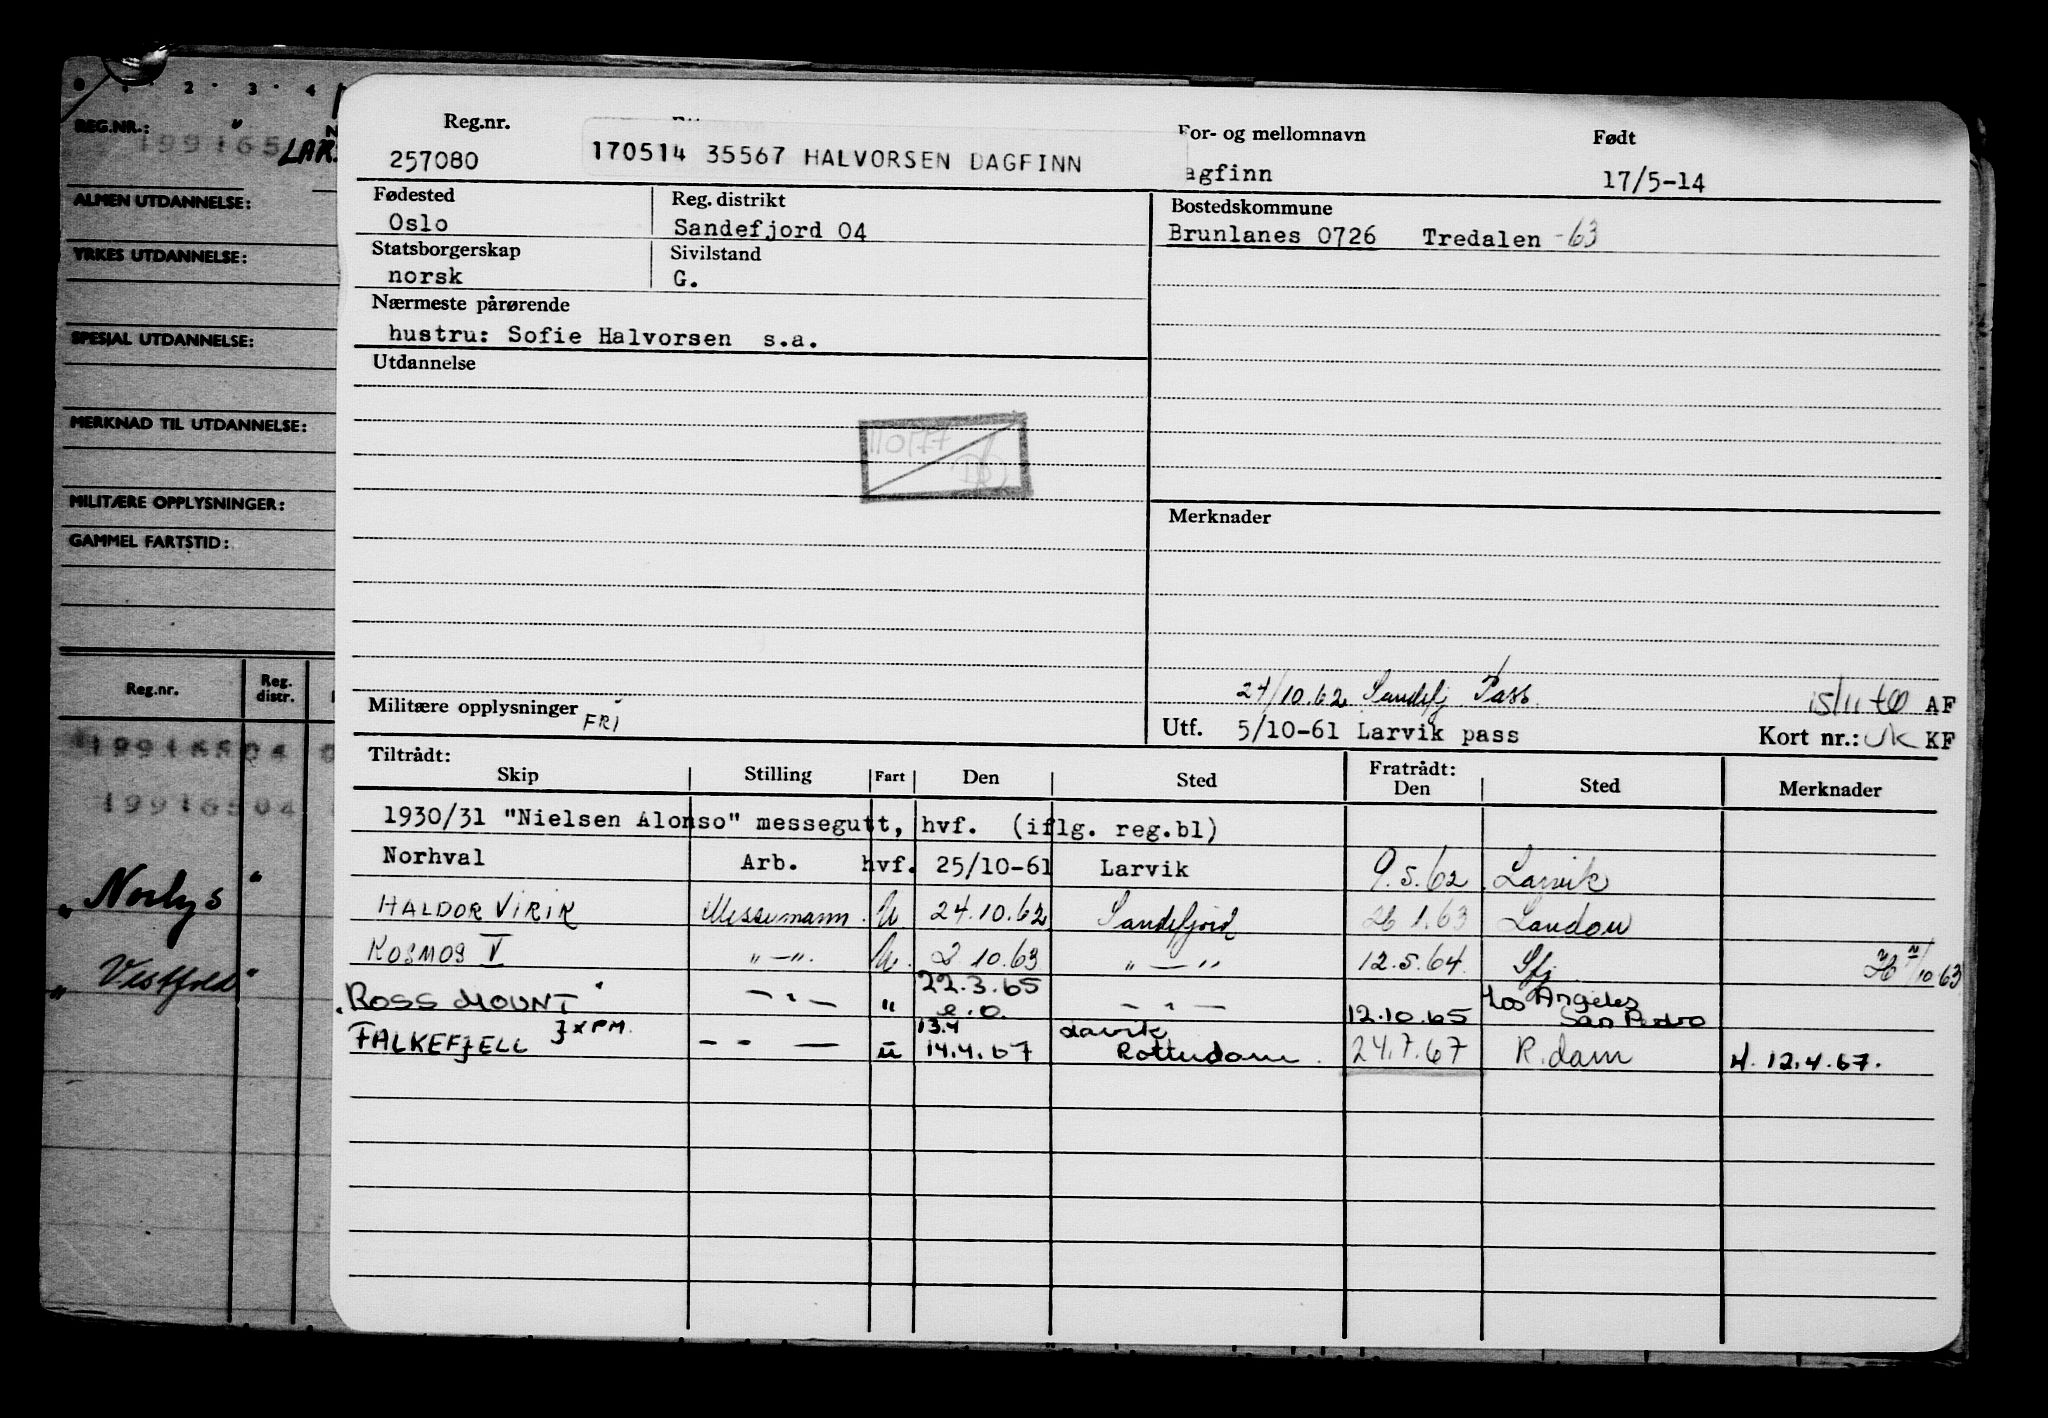 0 1 2 3 4
REG.NR.:
199165
LAR
ALMEN UTDANNELSE:
YRKES UTDANNELSE:
SPESIAL UTDANNELSE:
MERKNAD TIL UTDANNELSE:
MILITÆRE OPPLYSNINGER:
GAMMEL FARTSTID:
Reg.nr. Reg. distr.
19916504
19916504
"Norlys"
"Vestfold"
Reg.nr. For- og mellomnavn Født
257080 170514 35567 HALVORSEN DAGFINN agfinn 17/5-14
Fødested Reg. distrikt Bostedskommune
Oslo Sandefjord 04 Brunlanes 0726 Tredalen -63
Statsborgerskap Sivilstand
norsk G.
Nærmeste pårørende
hustru: Sofie Halvorsen s.a.
Utdannelse
Merknader
24/10.62 Sandefj Pass 15/11 AF
Militære opplysninger FRI Utf. 5/10-61 Larvik pass Kort nr.: UK KF
Tiltrådt: Fratrådt:
Skip Stilling Fart Den Sted Den Sted Merknader
1930/31 "Nielsen Alonso" messegutt, hvf. (iflg. reg.bl)
Norhval Arb. hvf. 25/10-61 Larvik 9.5.62 Larvik
HALDOR VIRIK Messemann U 24.10.62 Sandefjord 26 1.63 London
KOSMOS V " — " U. 2 10.63 " — " 12.5.64 Sfj 10 63
ROSS MOUNT — " — " 22.3.65 — " — 12.10.65 Los Angeles
e.o. San Pedro
FALKEFJELL } x PM. — - — u 13.4 Larvik
14.4.67 Rotterdam. 24.7.67 R.dam H. 12.4.67.